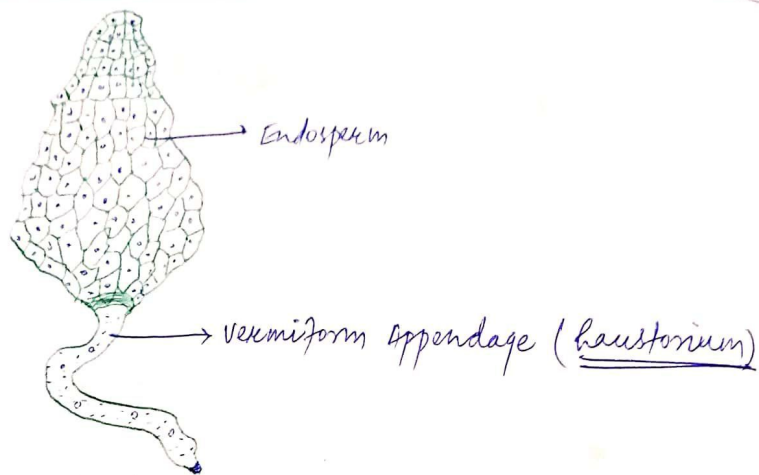 Endosperm
Vermiform Appendage (haustorium)